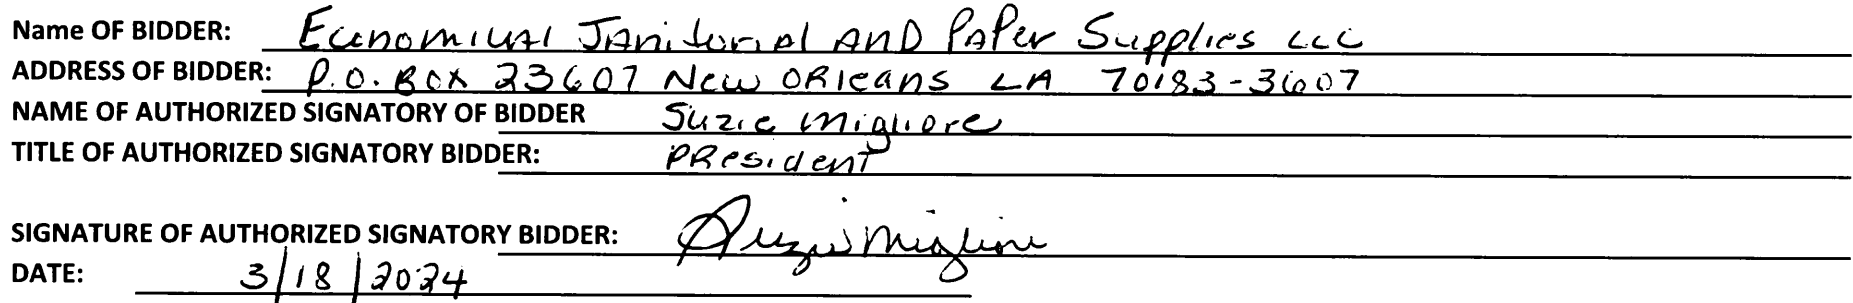 Name OF BIDDER: Economical Janitorial AND Paper Supplies LLC
ADDRESS OF BIDDER: P.O. Box 23607 New Orleans LA 70183-3607
NAME OF AUTHORIZED SIGNATORY OF BIDDER Suzie Migliore
TITLE OF AUTHORIZED SIGNATORY BIDDER: President
SIGNATURE OF AUTHORIZED SIGNATORY BIDDER: Suzie Migliore
DATE: 3/18/2024